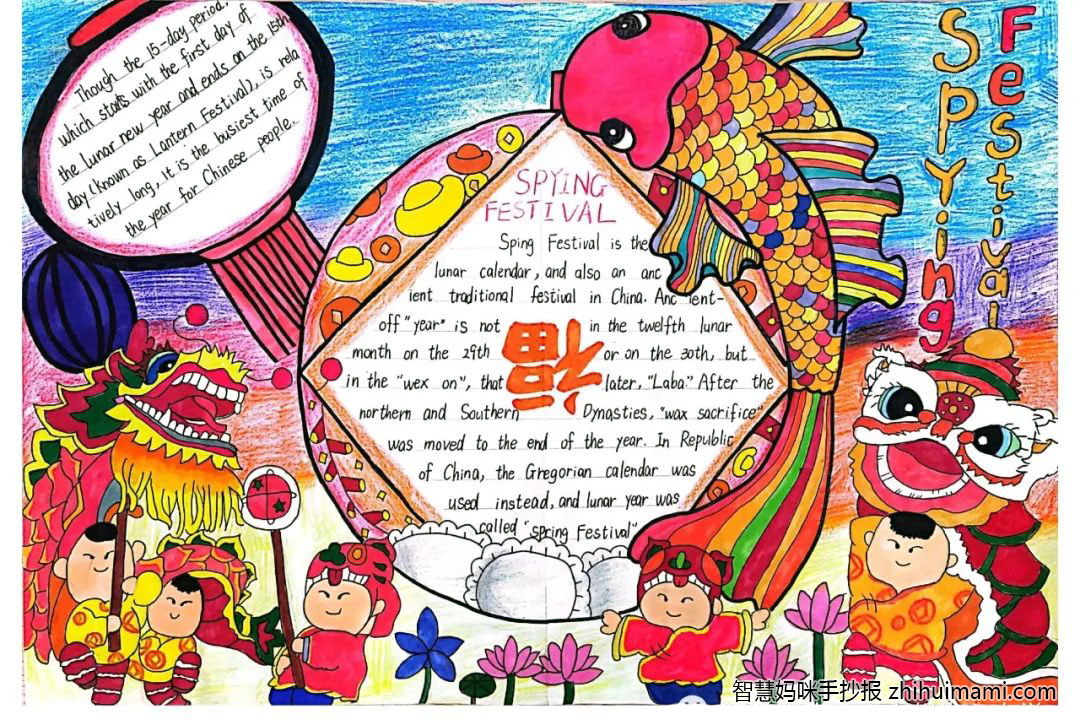 Though the 15-day period,
which starts with the first day of
the lunar new year and ends on the 15th
day (known as Lantern Festival), is rela
tively long, it is the busiest time of
the year for Chinese people.
SPYING
FESTIVAL
Sping Festival is the
lunar calendar, and also an anc
ient traditional festival in China. Anc ient-
off "year" is not in the twelfth lunar
month on the 29th or on the 30th, but
in the "wex on", that later, "Laba." After the
northern and Southern Dynasties, "wax sacrifice"
was moved to the end of the year. In Republic
of China, the Gregorian calendar was
used instead, and lunar year was
called "spring Festival"
福
Spying
Festival
智慧妈咪手抄报 zhihuimami.com